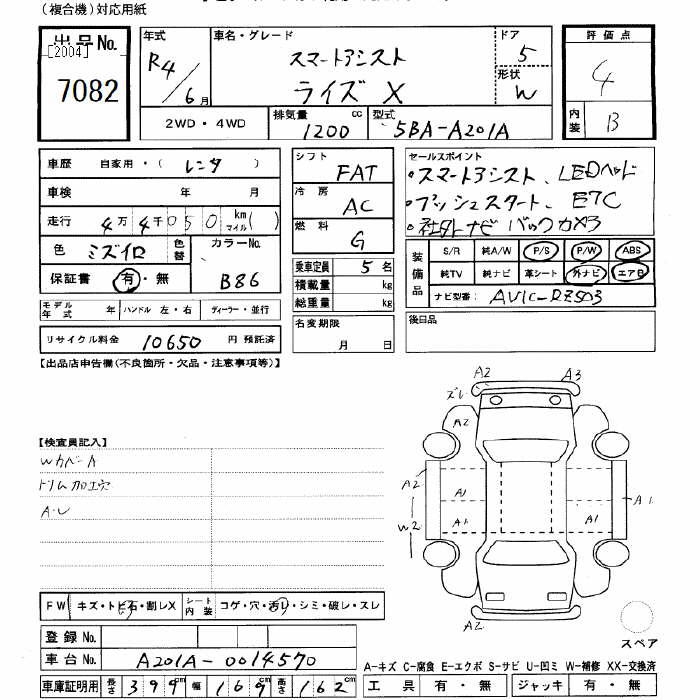 (複合機)対応用紙
出品No.
[2004]
7082
年式
R4/6月
車名・グレード
スマートアシスト
ライズ X
ドア
5
形状
W
評価点
4
内装
B
2WD・4WD
排気量
1200 cc
型式
5BA-A201A
車歴 自家用・(レンタ)
車検 年 月
走行 4万4千050 km マイル( )
色 ミズイロ 色替
カラーNo.
B86
保証書 有・無
モデル年式 年 ハンドル 左・右 ディーラー・並行
リサイクル料金 10650 円 預託済
シフト FAT
冷房 AC
燃料 G
乗車定員 5 名
積載量 kg
総重量 kg
名変期限
月 日
セールスポイント
・スマートアシスト、LEDヘッド
・プッシュスタート、ETC
・社外ナビ バックカメラ
装備品
S/R 純A/W P/S P/W ABS
純TV 純ナビ 革シート 外ナビ エアB
ナビ型番: AVIC-RZ503
後日品
【出品店申告欄(不良箇所・欠品・注意事項等)】
【検査員記入】
WカバーA
ドリム加工穴
A・レ
A2 A3
ズレ
A2
A2 A1 A1
W2 A1 A1
A2
スペア
FW キズ・トビ石・割レX
シート内装 コゲ・穴・汚レ・シミ・破レ・スレ
登録No.
車台No. A201A-0014570
車庫証明用 長さ 399cm 幅 169cm 高さ 162cm
A-キズ C-腐食 E-エクボ S-サビ U-凹ミ W-補修 XX-交換済
工具 有・無 ジャッキ 有・無